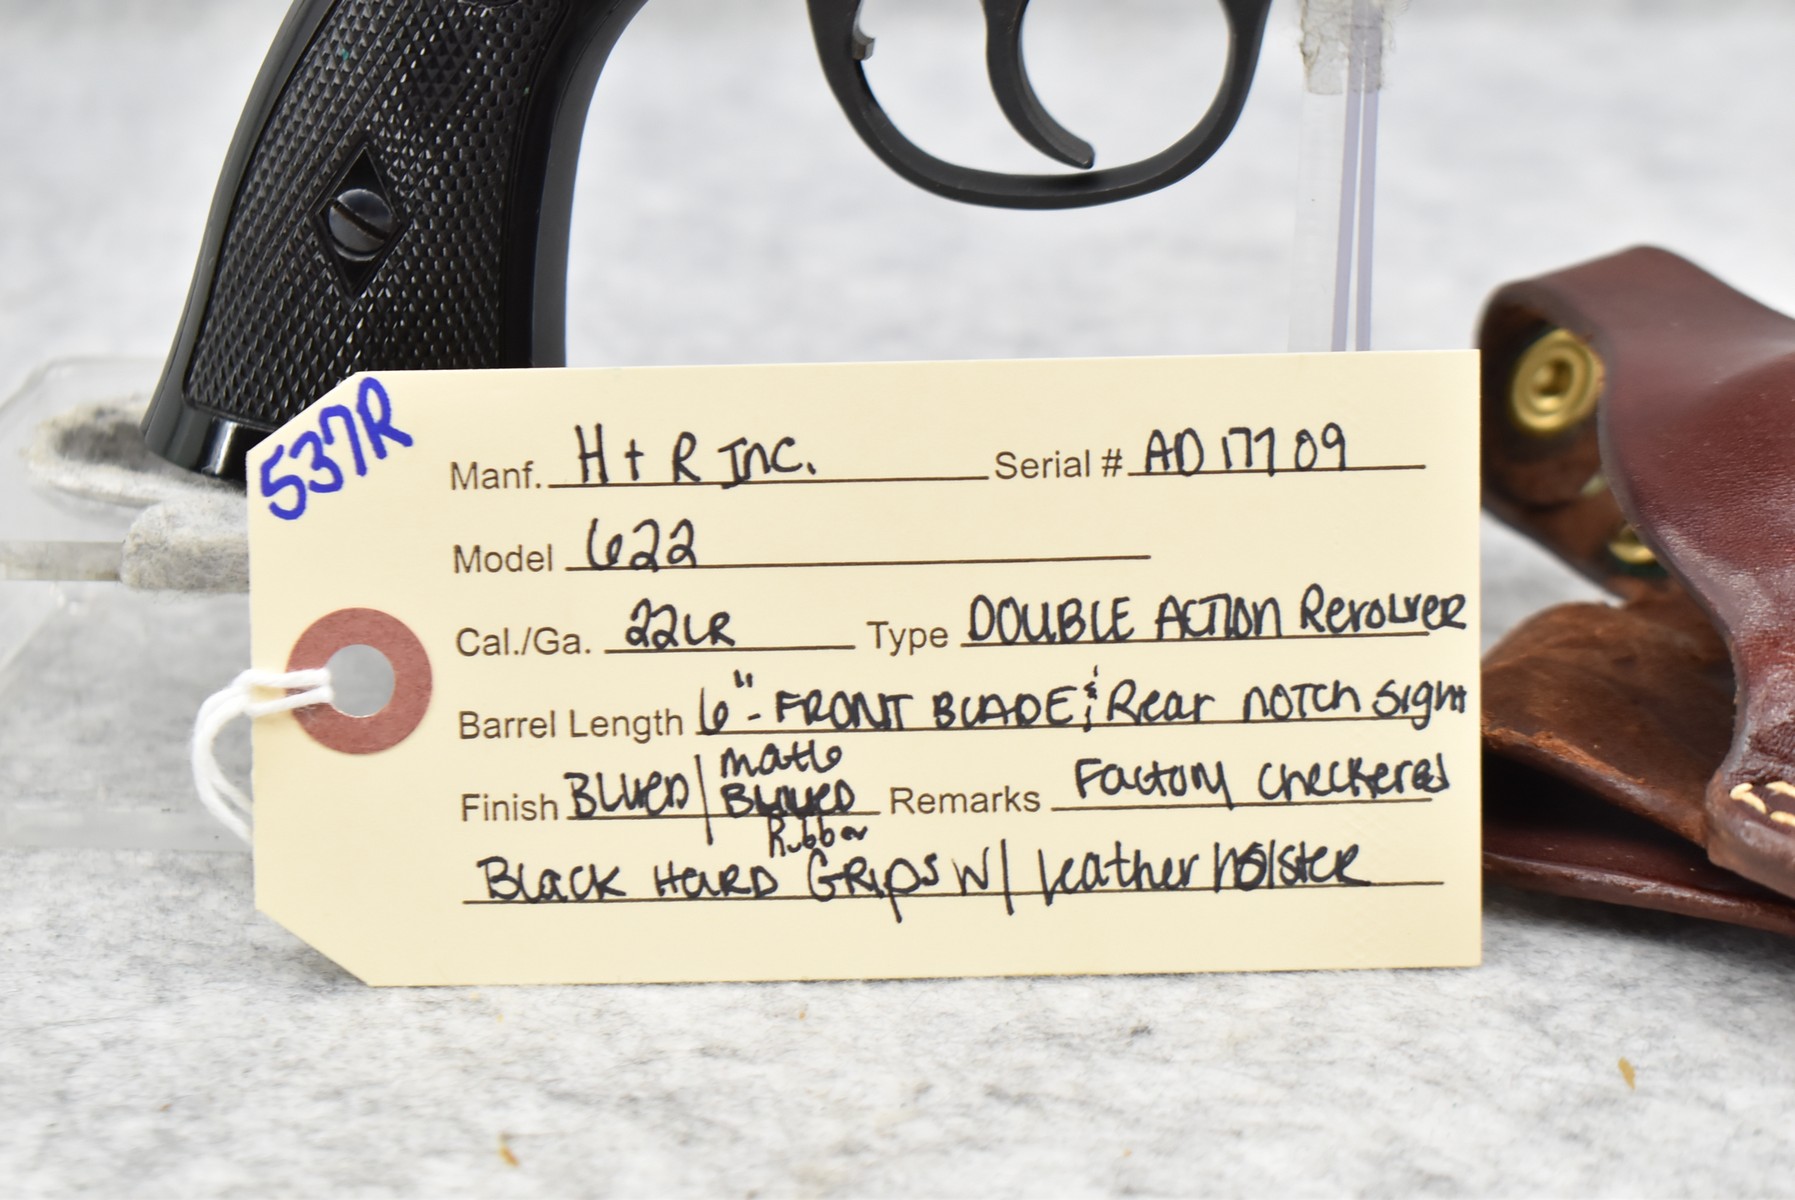 537R
Manf. H + R INC. Serial # AD17709
Model 622
Cal./Ga. 22LR Type DOUBLE ACTION Revolver
Barrel Length 6" - FRONT BLADE & Rear NOTCH Sight
Finish BLUED / matte BLUED Remarks Factory checkered
Black HARD Rubber GRIPS W/ leather holster